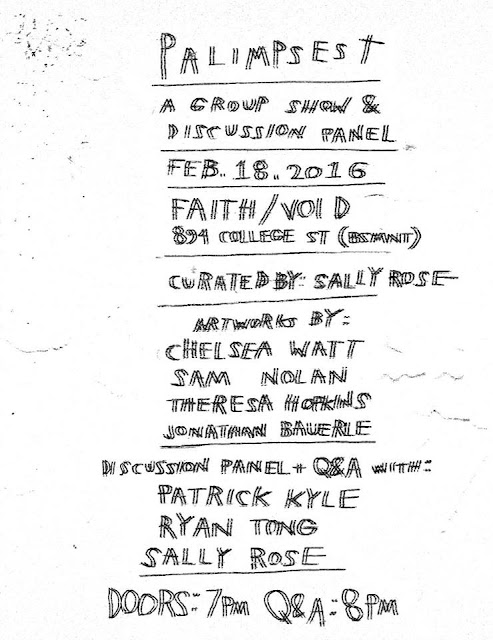 PALIMPSEST
A GROUP SHOW &
DISCUSSION PANEL
FEB. 18. 2016
FAITH/VOID
894 COLLEGE ST (BSMNT)
CURATED BY: SALLY ROSE
ARTWORKS BY:
CHELSEA WATT
SAM NOLAN
THERESA HOPKINS
JONATHAN BAUERLE
DISCUSSION PANEL + Q&A WITH:
PATRICK KYLE
RYAN TONG
SALLY ROSE
DOORS: 7PM Q&A: 8PM